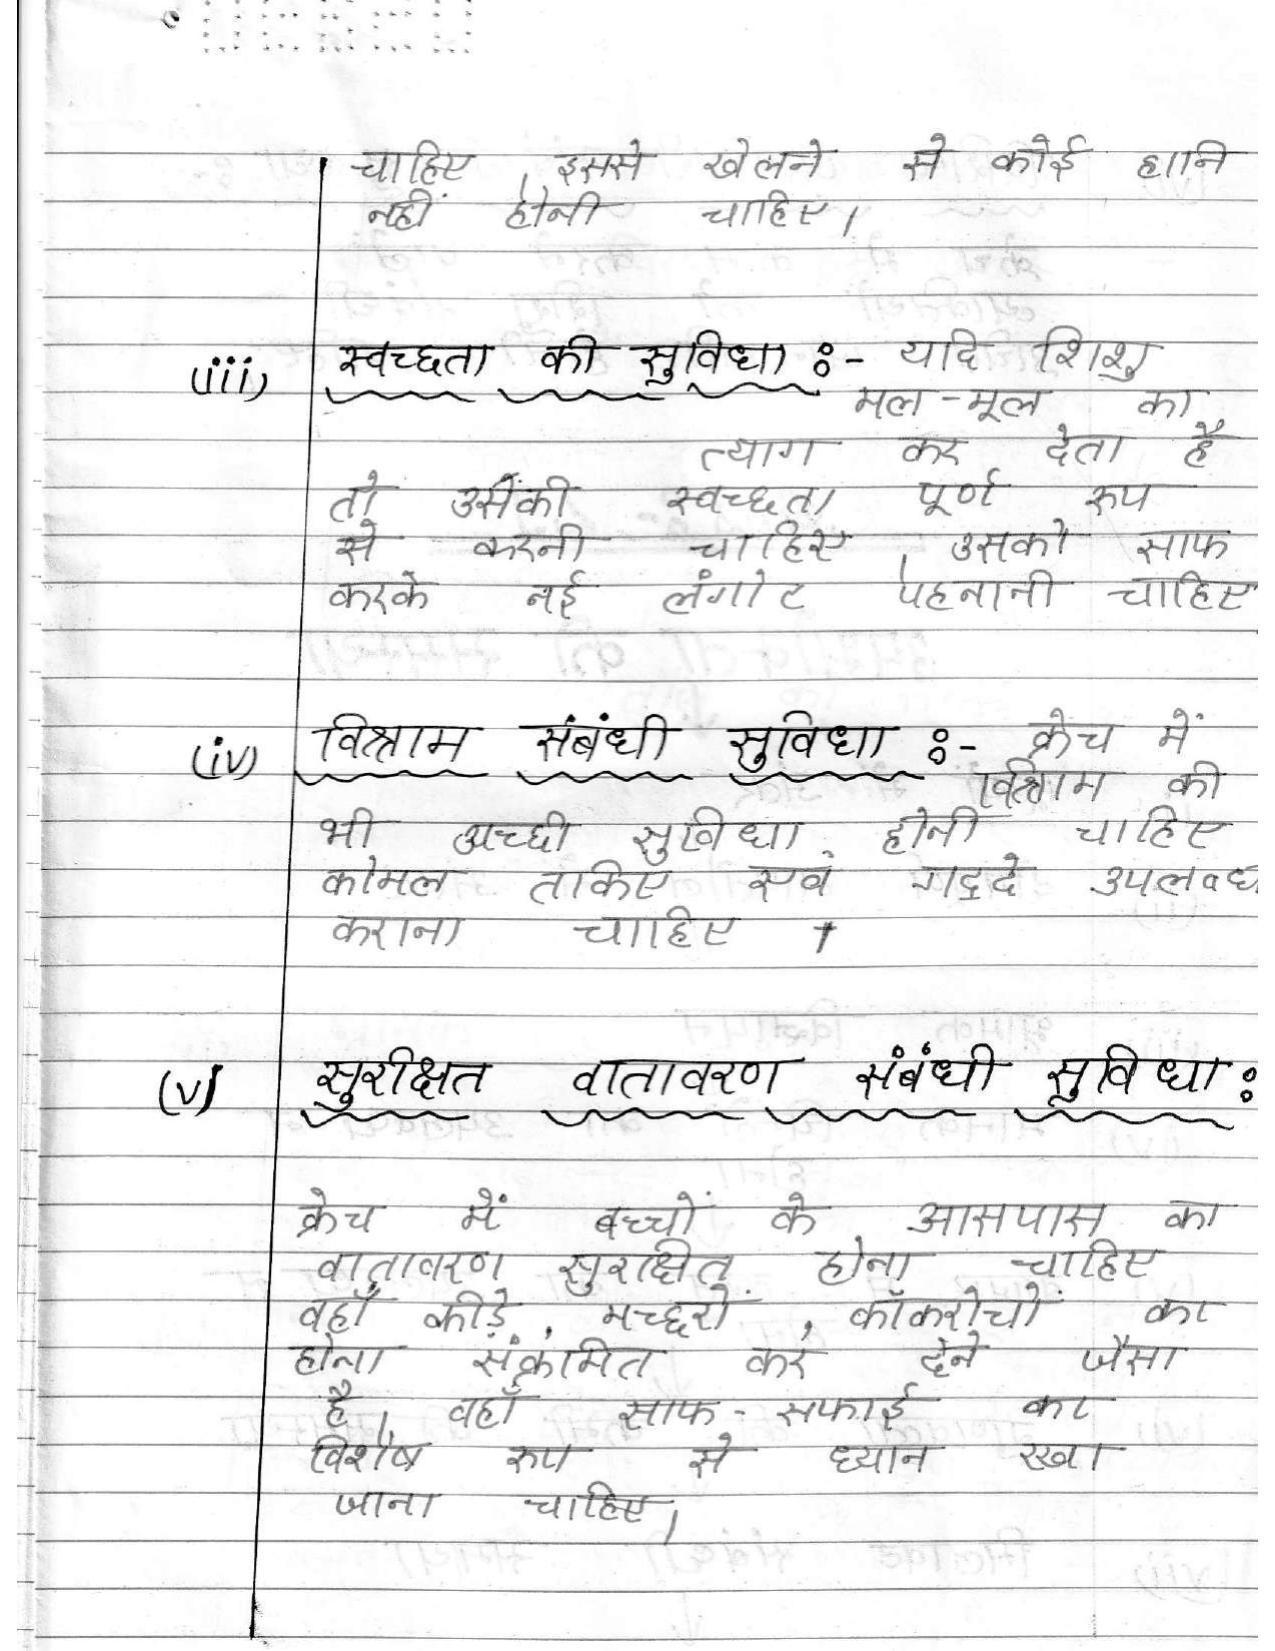 चाहिए , इससे खेलने से कोई हानि
नहीं होनी चाहिए।
(iii) स्वच्छता की सुविधा :- यदि शिशु
मल-मूल का
त्याग कर देता है
तो उसकी स्वच्छता पूर्ण रूप
से करनी चाहिए , उसको साफ
करके नई लंगोट पहनानी चाहिए
(iv) विश्राम संबंधी सुविधा :- क्रेच में
विश्राम की
भी अच्छी सुविधा होनी चाहिए
कोमल तकिए एवं गद्दे उपलब्ध
कराना चाहिए ।
(v) सुरक्षित वातावरण संबंधी सुविधा :
क्रेच में बच्चों के आसपास का
वातावरण सुरक्षित होना चाहिए
वहाँ कीड़े , मच्छरों , कॉकरोचों का
होना संक्रमित कर देने जैसा
है , वहाँ साफ-सफाई का
विशेष रूप से ध्यान रखा
जाना चाहिए।